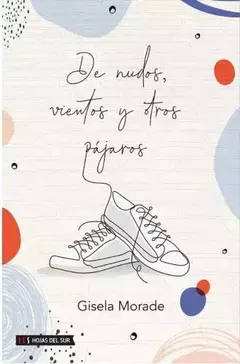 De nudos,
vientos y otros
pájaros
Gisela Morade
HOJAS DEL SUR